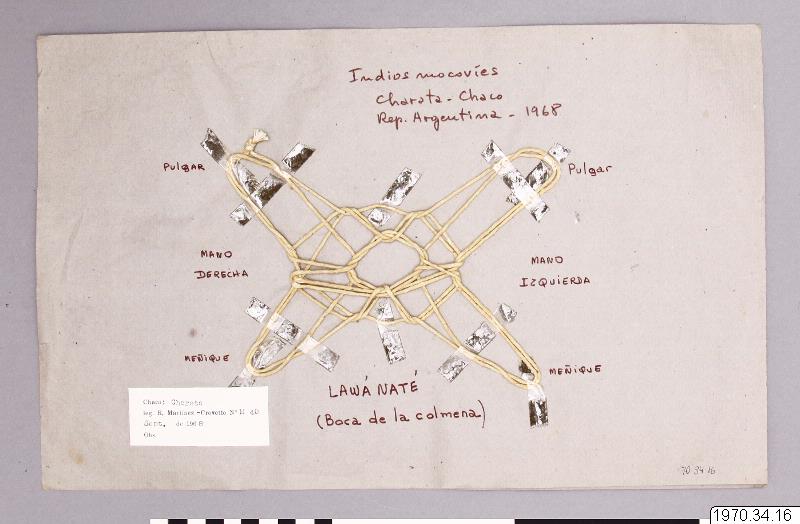 Indios mocovíes
Charata - Chaco
Rep. Argentina - 1968
Pulgar
Pulgar
MANO
DERECHA
MANO
IZQUIERDA
MEÑIQUE
MEÑIQUE
LAWÁ NATÉ
(Boca de la colmena)
Chaco: Charata
leg. R. Martínez-Crovetto, Nº
Sept. de 1968
Obs
70 34 16
1970.34.16